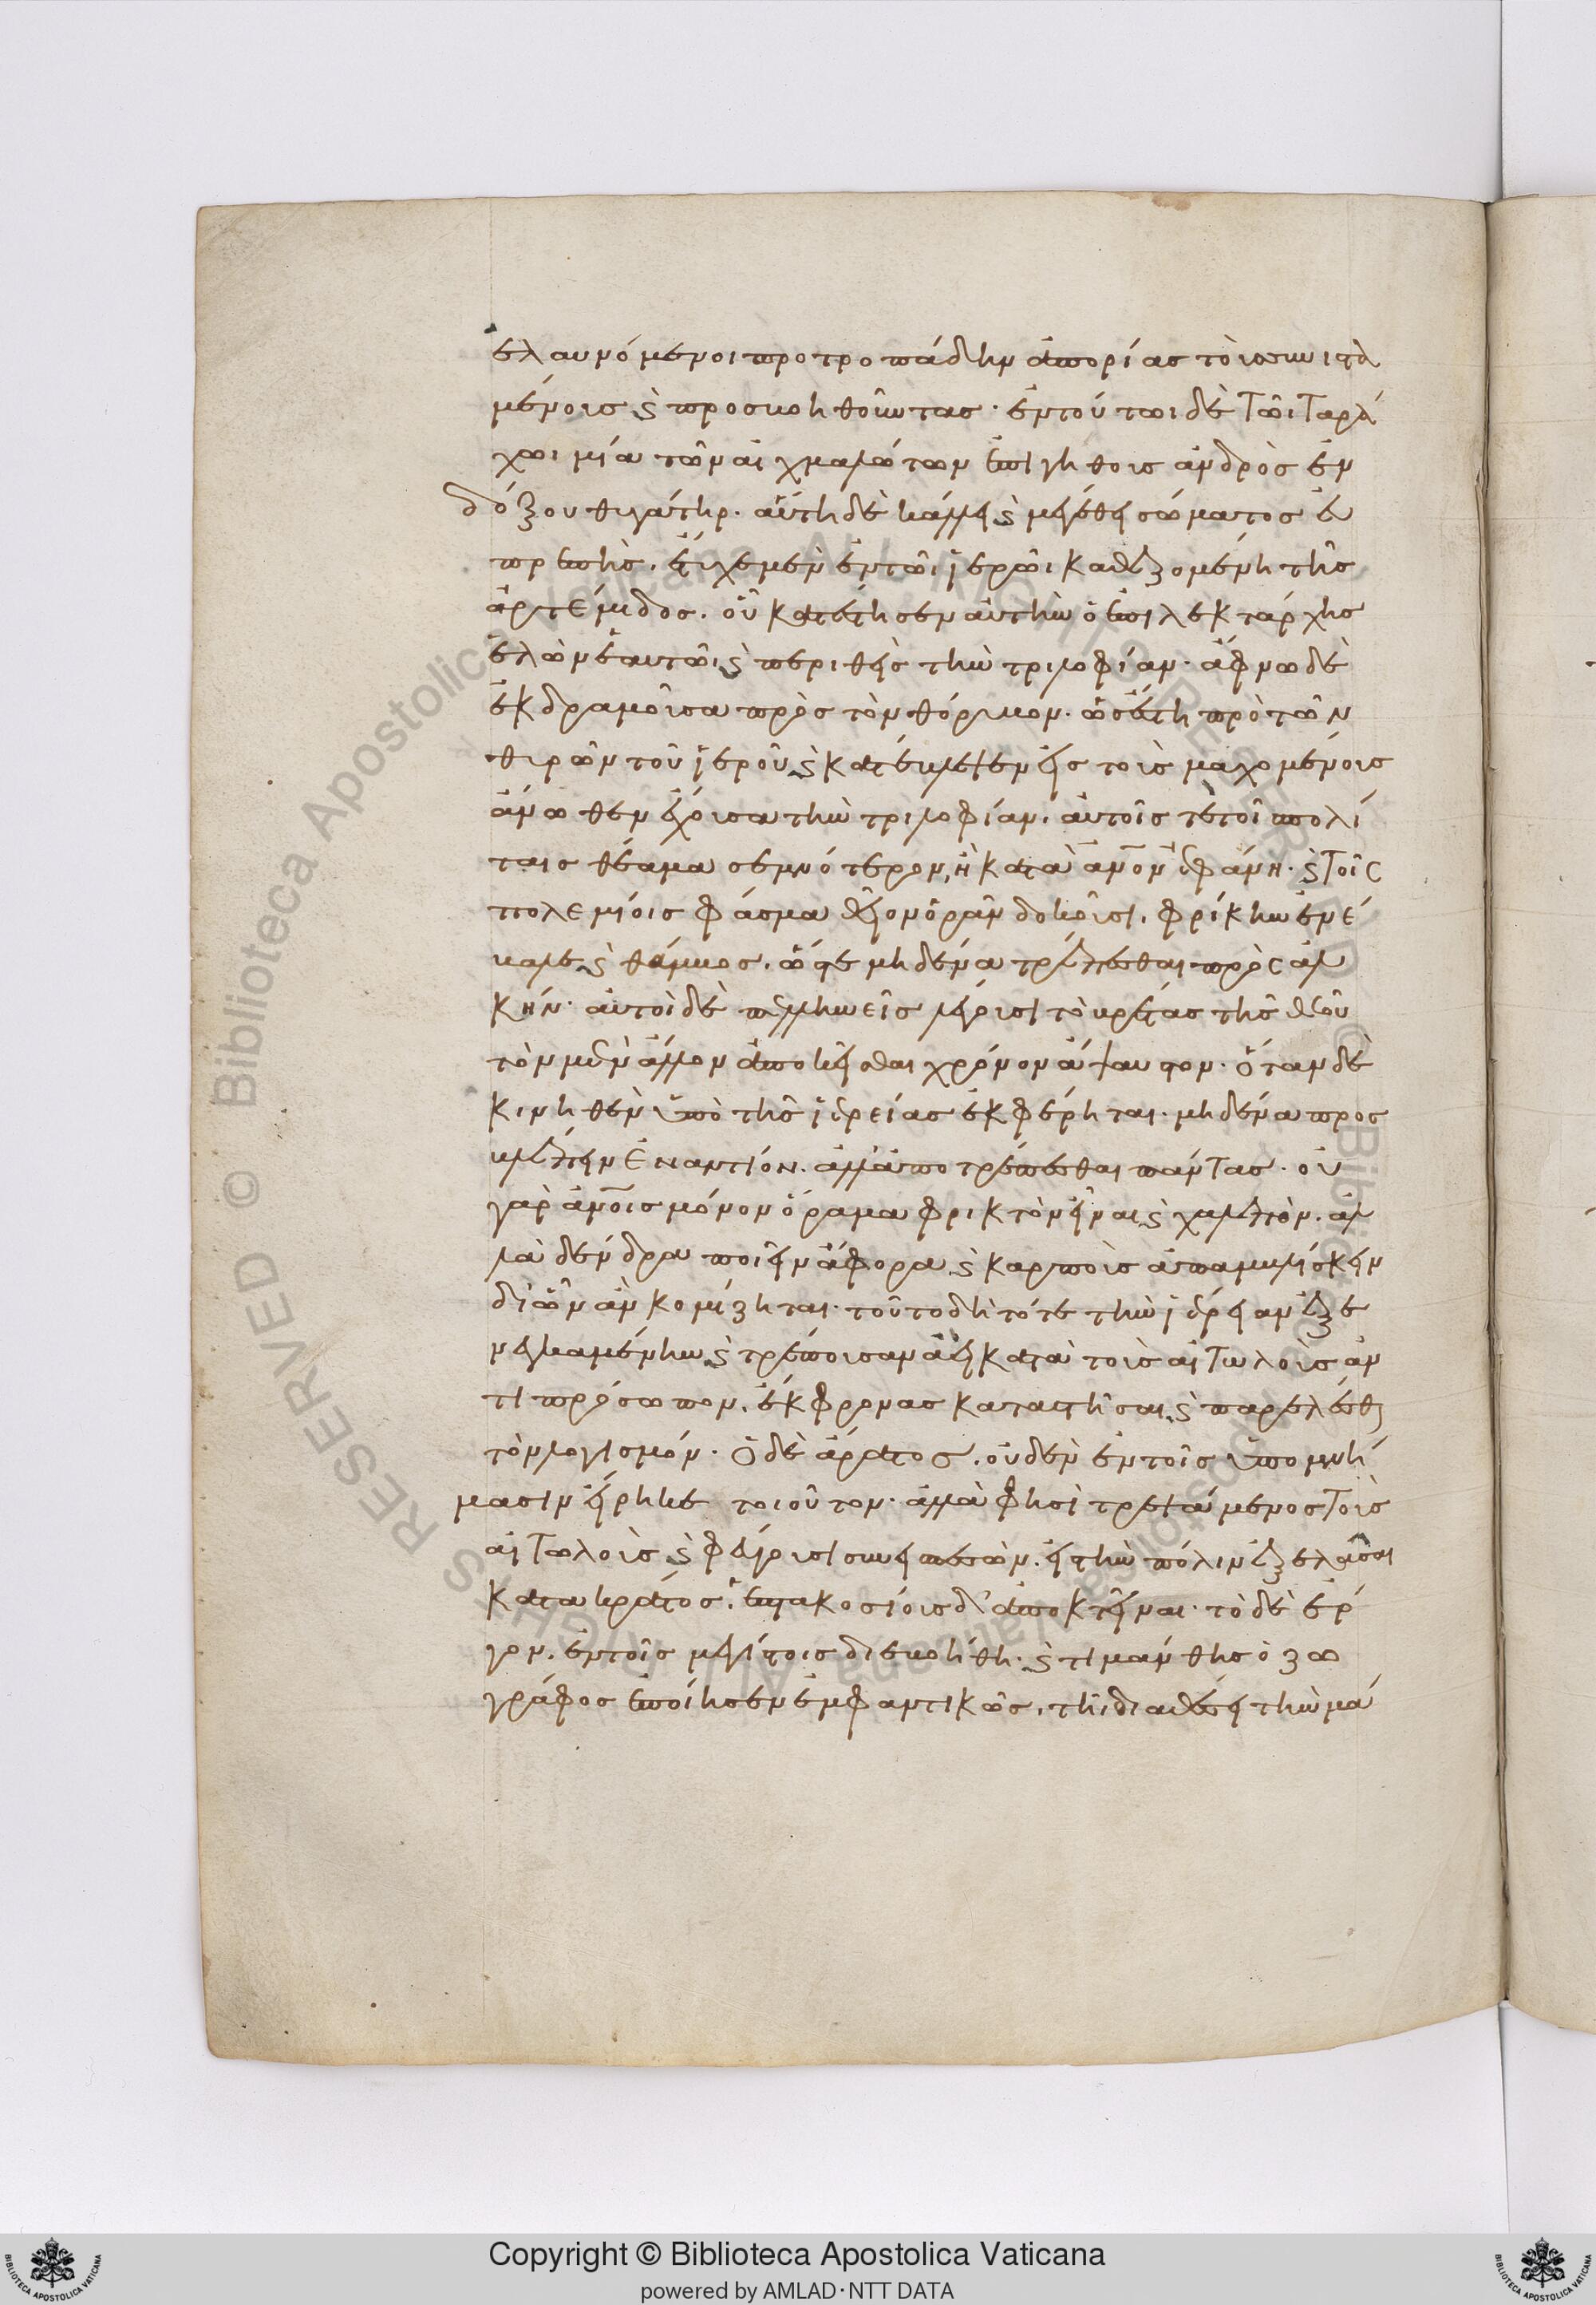 ἐλαυνόμενοι προτροπάδην ἀπορίας τοὺς συνιστα
μένους καὶ προσβοηθοῦντας· ἐν τούτωι δὲ τῶι ταρά
χωι μία τῶν αἰχμαλώτων ἐπιγήθους ἀνδρὸς ἐν
δόξου θυγάτηρ. αὕτη δὲ κάλλει καὶ μεγέθει σώματος εὐ
πρεπής. ἔτυχε μὲν ἐν τῶι ἱερῶι καθεζομένη τῆς
ἀρτέμιδος. οὗ κατέστησεν αὐτὴν ὁ ἐπιλεκτάρχης
ἑλὼν ἑαυτῶι, καὶ περιθεὶς τὴν τριλοφίαν· ἄφνω δὲ
ἐκδραμοῦσα πρὸς τὸν θόρυβον. ὡς ἔστη πρὸ τῶν
θυρῶν τοῦ ἱεροῦ καὶ κατέβλεψεν εἰς τοὺς μαχομένους
ἄνωθεν ἔχουσα τὴν τριλοφίαν. αὐτοῖς τὲ τοῖ πολί
ταις θέαμα σεμνότερον, ἢ κατὰ ἄνον ἐφάνη. καὶ τοῖς
πολεμίοις φάσμα θεῖον ὁρᾶν δοκοῦσι. φρίκην ἐνέ
βαλε καὶ θάμβος. ὥστε μηδένα τρέπεσθαι πρὸς ἀλ
κήν· αὐτοὶ δὲ πελληνεῖς λέγουσι τὸ βρέτας τῆς θεοῦ
τὸν μὲν ἄλλον ἀποκεῖσθαι χρόνον ἄψαυστον. ὅταν δὲ
κινηθὲν ὑπὸ τῆς ἱερείας ἐκφέρηται. μηδένα προσ
βλέπειν ἐναντίον. ἀλλ' ἀποτρέπεσθαι πάντας. οὐ
γὰρ ἀνοις μόνον ὅραμα φρικτὸν εἶναι, καὶ χαλεπὸν. ἀλ
λὰ δένδρα ποιεῖν ἄφορα καὶ καρποὺς ἀπαμβλίσκειν
δι' ὧν ἂν κομίζηται. τοῦτο δὴ τότε τὴν ἱέρειαν ἐξε
νεγκαμένην καὶ τρέπουσαν ἀεὶ κατὰ τοὺς αἰτωλοὺς ἀν
τιπρόσωπον. ἔκφρονας καταστῆσαι, καὶ παρελέσθαι
τὸν λογισμόν. ὁ δὲ ἄρατος. οὐδὲν ἐν τοῖς ὑπομνή
μασιν εἴρηκε τοιοῦτον. ἀλλά φησι τρεψάμενος τοὺς
αἰτωλοὺς καὶ φεύγουσι συνεισπεσὼν εἰς τὴν πόλιν ἐξελάσαι
κατακράτος. ἑπτακοσίους δ' ἀποκτεῖναι. τὸ δὲ ἔρ
γον. ἐν τοῖς μεγίστοις διεβοήθη. καὶ τιμάνθης ὁ ζω
γράφος ἐποίησεν ἐμφαντικῶς. τῆι διαθέσει τὴν μά
Copyright © Biblioteca Apostolica Vaticana
powered by AMLAD·NTT DATA